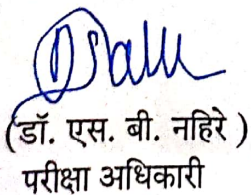 (डॉ. एस. बी. नहिरे )
परीक्षा अधिकारी